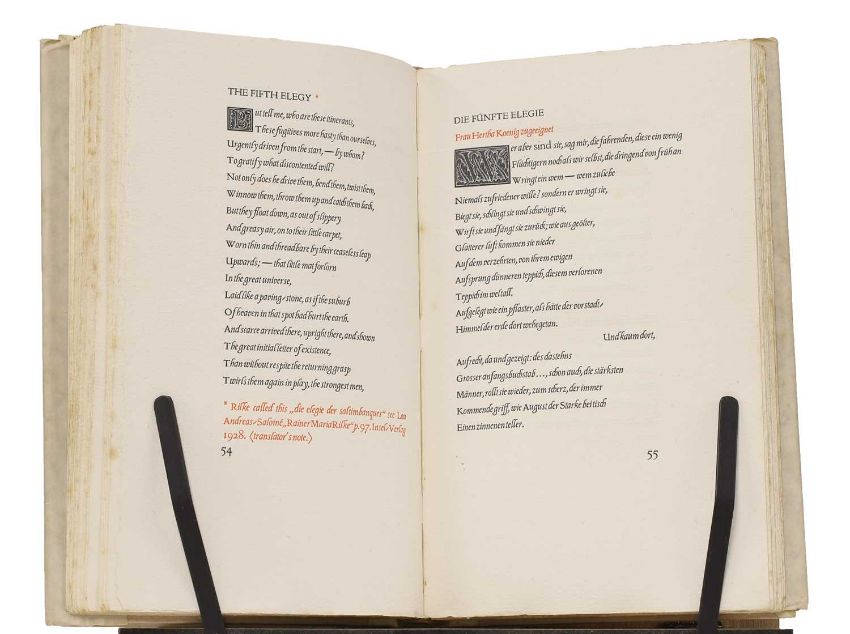 THE FIFTH ELEGY *
But tell me, who are these itinerants,
These fugitives more hasty than ourselves,
Urgently driven from the start, — by whom?
To gratify what discontented will?
Not only does he drive them, bend them, twist them,
Winnow them, throw them up and catch them back,
But they float down, as out of slippery
And greasy air, on to their little carpet,
Worn thin and threadbare by their ceaseless leap
Upwards; — that little mat forlorn
In the great universe,
Laid like a paving-stone, as if the suburb
Of heaven in that spot had hurt the earth.
And scarce arrived there, upright there, and shown
The great initial letter of existence,
Than without respite the returning grasp
Twirls them again in play, the strongest men,
* Rilke called this „die elegie der saltimbanques“ see Lou
Andreas-Salomé „Rainer Maria Rilke“ p.97. Insel-Verlag
1928. (translator's note.)
54
DIE FÜNFTE ELEGIE
Frau Hertha Koenig zugeeignet
Wer aber sind sie, sag mir, die fahrenden, diese ein wenig
Flüchtigern noch als wir selbst, die dringend von früh an
Wringt ein wem — wem zu liebe
Niemals zufriedener wille? sondern er wringt sie,
Biegt sie, schlingt sie und schwingt sie,
Wirft sie und fängt sie zurück; wie aus geölter,
Glatterer luft kommen sie nieder
Auf dem verzehrten, von ihrem ewigen
Aufsprung dünneren teppich, diesem verlorenen
Teppich im weltall.
Aufgelegt wie ein pflaster, als hätte der vorstadt-
Himmel der erde dort wehegetan.
Und kaum dort,
Aufrecht, da und gezeigt: des dastehns
Grosser anfangsbuchstab..., schon auch, die stärksten
Männer, rollt sie wieder, zum scherz, der immer
Kommende griff, wie August der Starke bei tisch
Einen zinnenen teller.
55